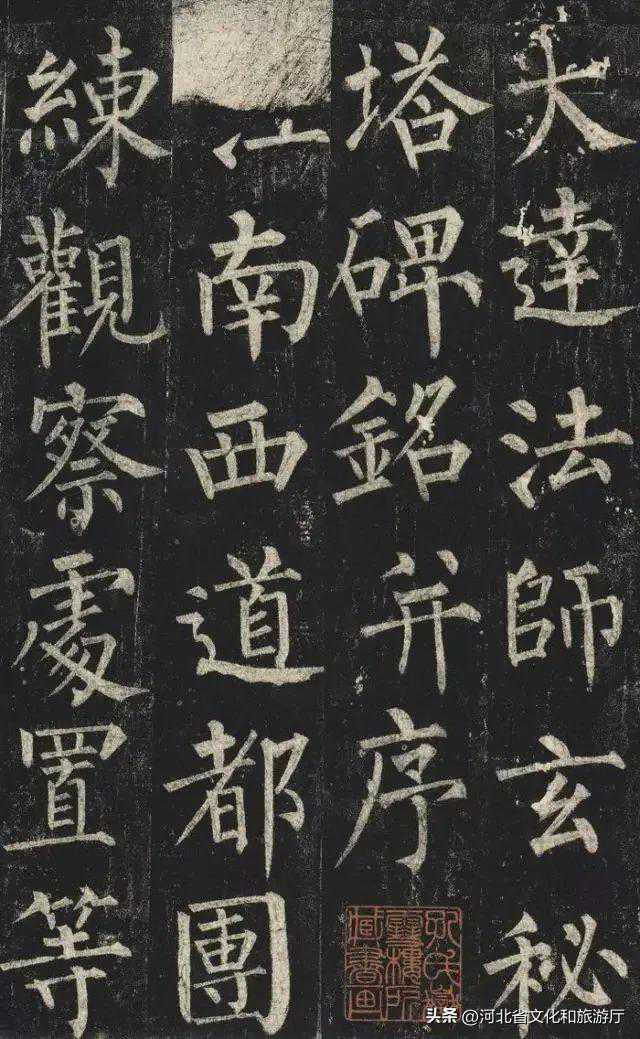 大達法師玄秘
塔碑銘并序
南西道都團
練觀察處置等
头条 @河北省文化和旅游厅